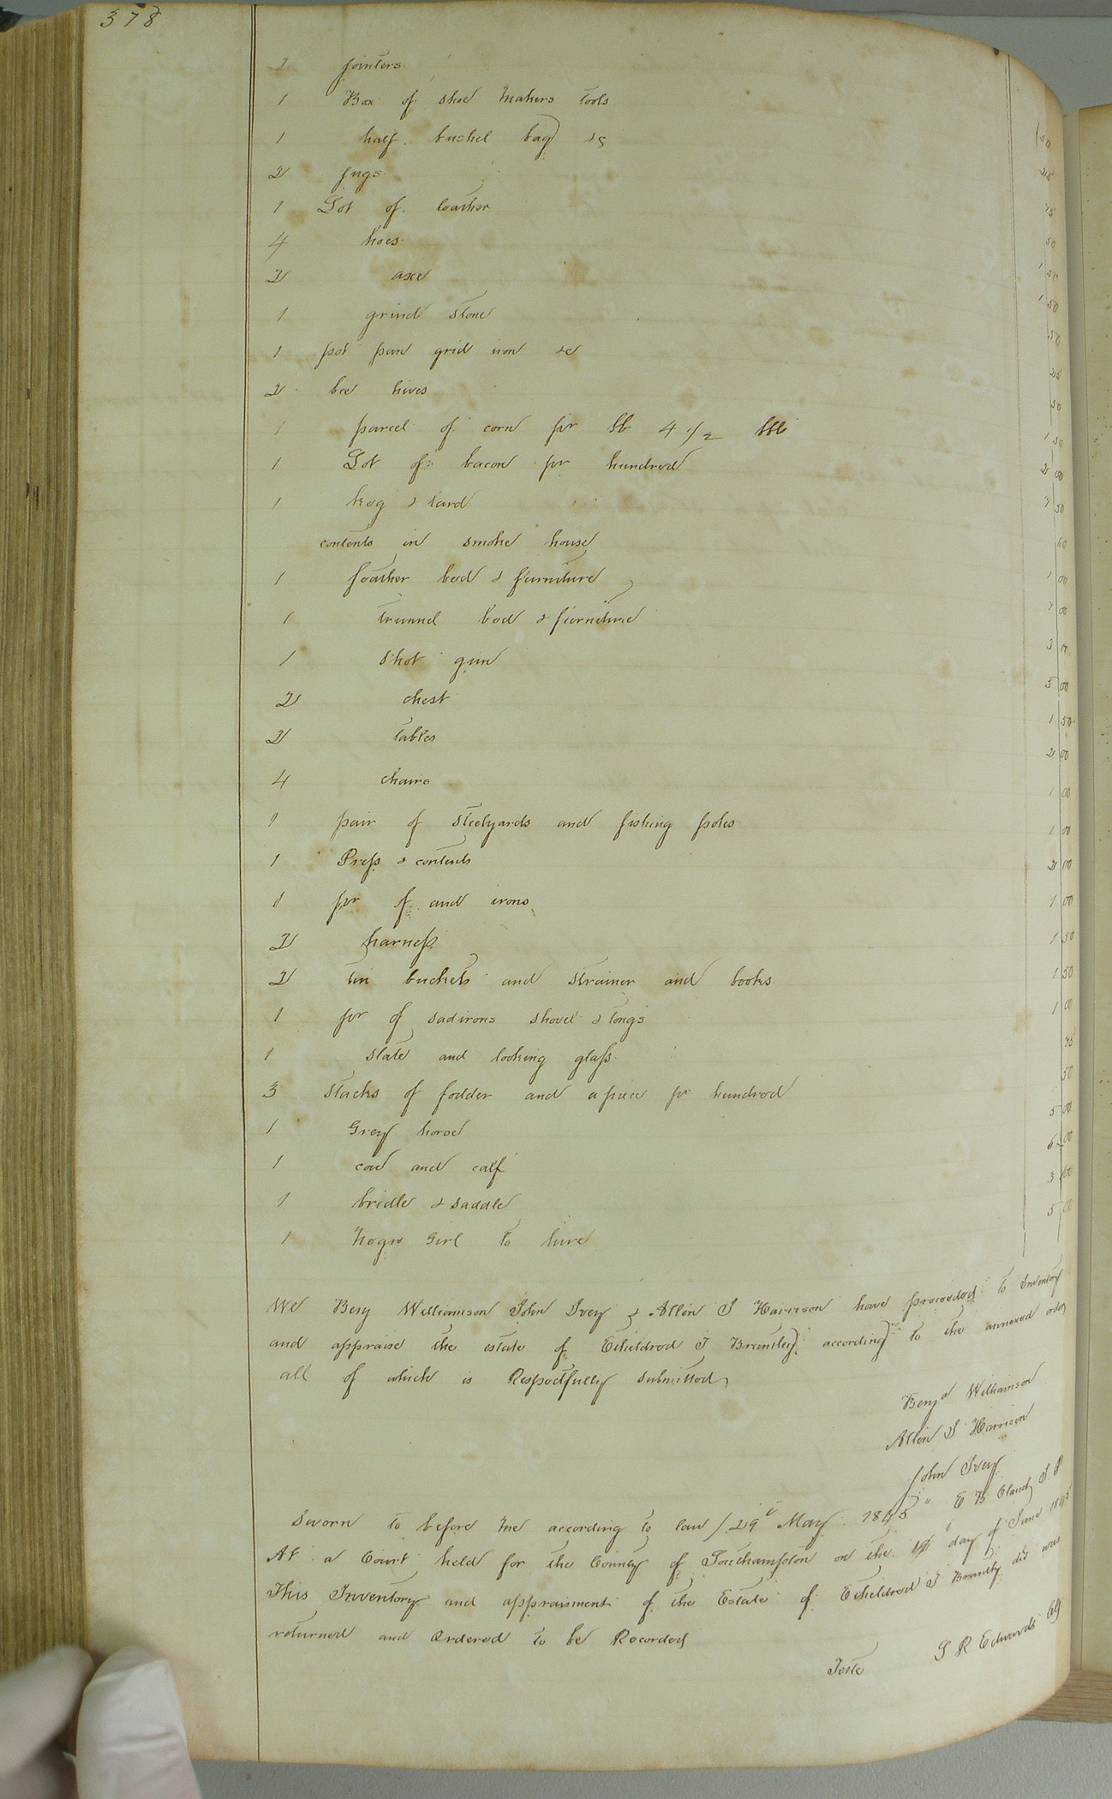 378
2 jointers
1 Box of shoe makers tools
1 half bushel bag &c
2 jugs 25
1 Lot of leather
4 hoes 50
2 axe
1 grind stone 1 50
1 pot pan grid iron &c 50
2 bee hives
1 parcel of corn pr bb 4 1/2 bbl
1 Lot of bacon pr hundred
1 keg & lard
contents in smoke house
1 feather bed & furniture
1 trunnel bed & furniture
1 shot gun
2 chest
2 tables
4 chairs
1 pair of steelyards and fishing poles
1 Press & contents
1 pr of and irons
2 harness
2 tin buckets and strainer and books
1 pr of sadirons shovel & tongs
1 slate and looking glass
3 stacks of fodder and a piece pr hundred
1 Grey horse
1 cow and calf
1 bridle & saddle
1 Negro Girl to hire
We Benj Williamson John Ivey & Allen J Harrison have proceeded to Inventory
and appraise the estate of Etheldred J Brantley according to the annexed order
all of which is Respectfully submitted
Benja Williamson
Allen J Harrison
John Ivey
Sworn to before me according to law / 29th May 1845 " E B Claud J P
At a Court held for the County of Southampton on the day of June 1845
This Inventory and appraisment of the Estate of Etheldred J Brantley dcd was
returned and Ordered to be Recorded
Teste L R Edwards Clk